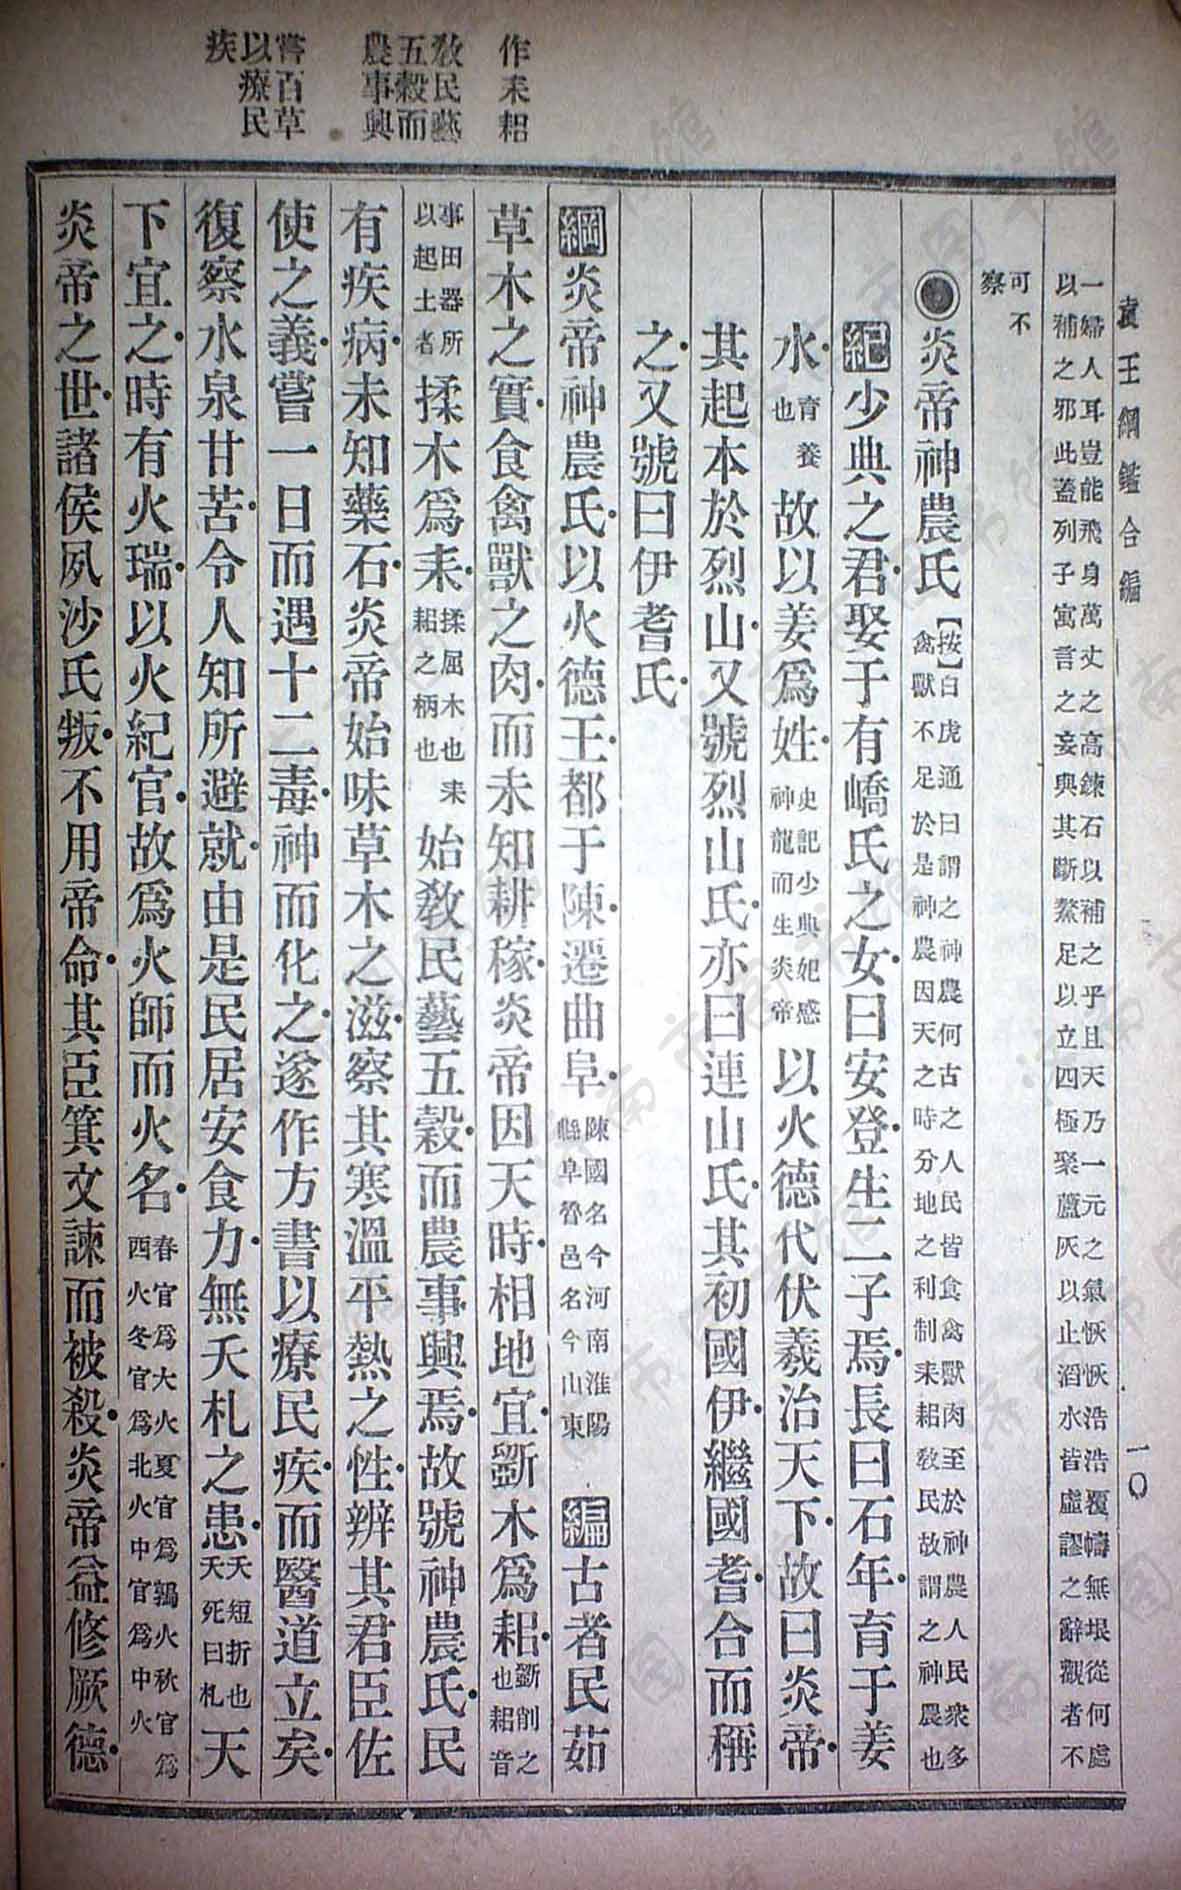 作耒耜
教民藝
五穀而
農事興
嘗百草
以療民
疾
袁王綱鑑合編
一〇
一婦人耳豈能飛身萬丈之高鍊石以補之乎且天乃一元之氣恢恢浩浩覆幬無垠從何處
以補之邪此蓋列子寓言之妄與其斷鰲足以立四極聚蘆灰以止滔水皆虛謬之辭觀者不
可不
察
炎帝神農氏【按】白虎通曰謂之神農何古之人民皆食禽獸肉至於神農人民衆多
禽獸不足於是神農因天之時分地之利制耒耜教民故謂之神農也
紀少典之君娶于有嶠氏之女曰安登生二子焉長曰石年育于姜
水育養也故以姜爲姓史記少典妃感神龍而生炎帝以火德代伏羲治天下故曰炎帝
其起本於烈山又號烈山氏亦曰連山氏其初國伊繼國耆合而稱
之又號曰伊耆氏
綱炎帝神農氏以火德王都于陳遷曲阜陳國名今河南淮陽縣阜魯邑名今山東編古者民茹
草木之實食禽獸之肉而未知耕稼炎帝因天時相地宜斲木爲耜斲削之也耜音
事田器所以起土者揉木爲耒揉屈木也耒耜之柄也始教民藝五穀而農事興焉故號神農氏民
有疾病未知藥石炎帝始味草木之滋察其寒溫平熱之性辨其君臣佐
使之義嘗一日而遇十二毒神而化之遂作方書以療民疾而醫道立矣
復察水泉甘苦令人知所避就由是民居安食力無夭札之患夭短折也夭死曰札天
下宜之時有火瑞以火紀官故爲火師而火名春官爲大火夏官爲鶉火秋官爲西火冬官爲北火中官爲中火
炎帝之世諸侯夙沙氏叛不用帝命其臣箕文諫而被殺炎帝益修厥德